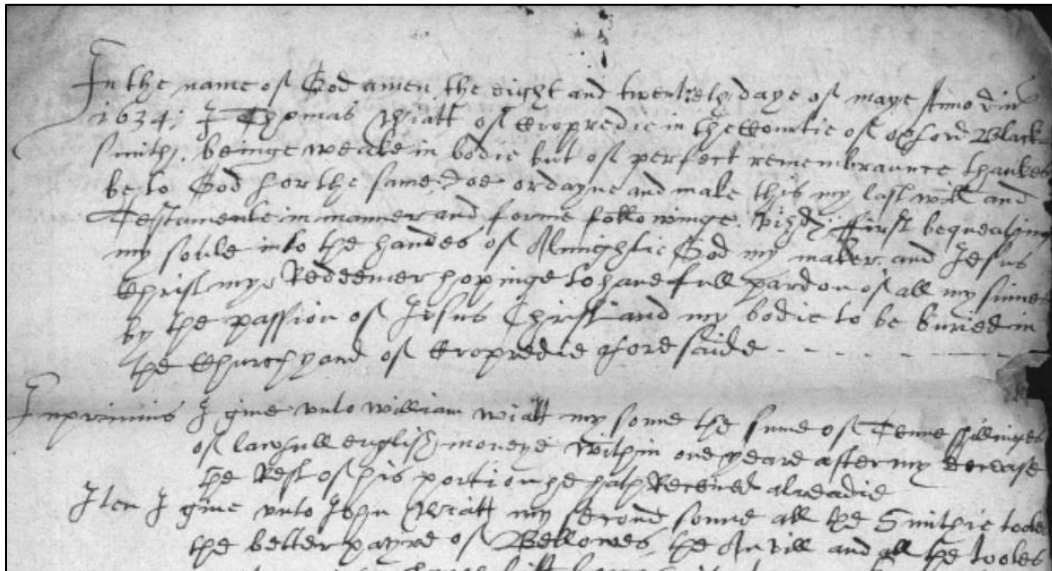 In the name of God amen the eight and twentieth daye of maye
1634: I Thomas Wiatt of Cropredie in the Countie of Oxford Black
smith, beinge weake in bodie but of perfect remembraunce thankes
be to God for the same, doe ordayne and make this my last will and
Testamente in manner and forme followinge. vizd; first bequeathing
my soule into the handes of Almightie God my maker and Jesus
Christ my Redeemer hopinge to have full pardon of all my sinnes
by the passion of Jesus Christ and my bodie to be buried in
the Churchyard of Cropredie aforesaide - - - - -
Inprimis I give unto William Wiatt my sonne the sume of Tenne shillinges
of lawfull english moneye within one yeare after my decease
the Rest of his portion he hath Received alreadie
Item I give unto John Wiatt my second sonne all the Smithie tooles
the better payre of Bellowes, the Anvill and all the tooles